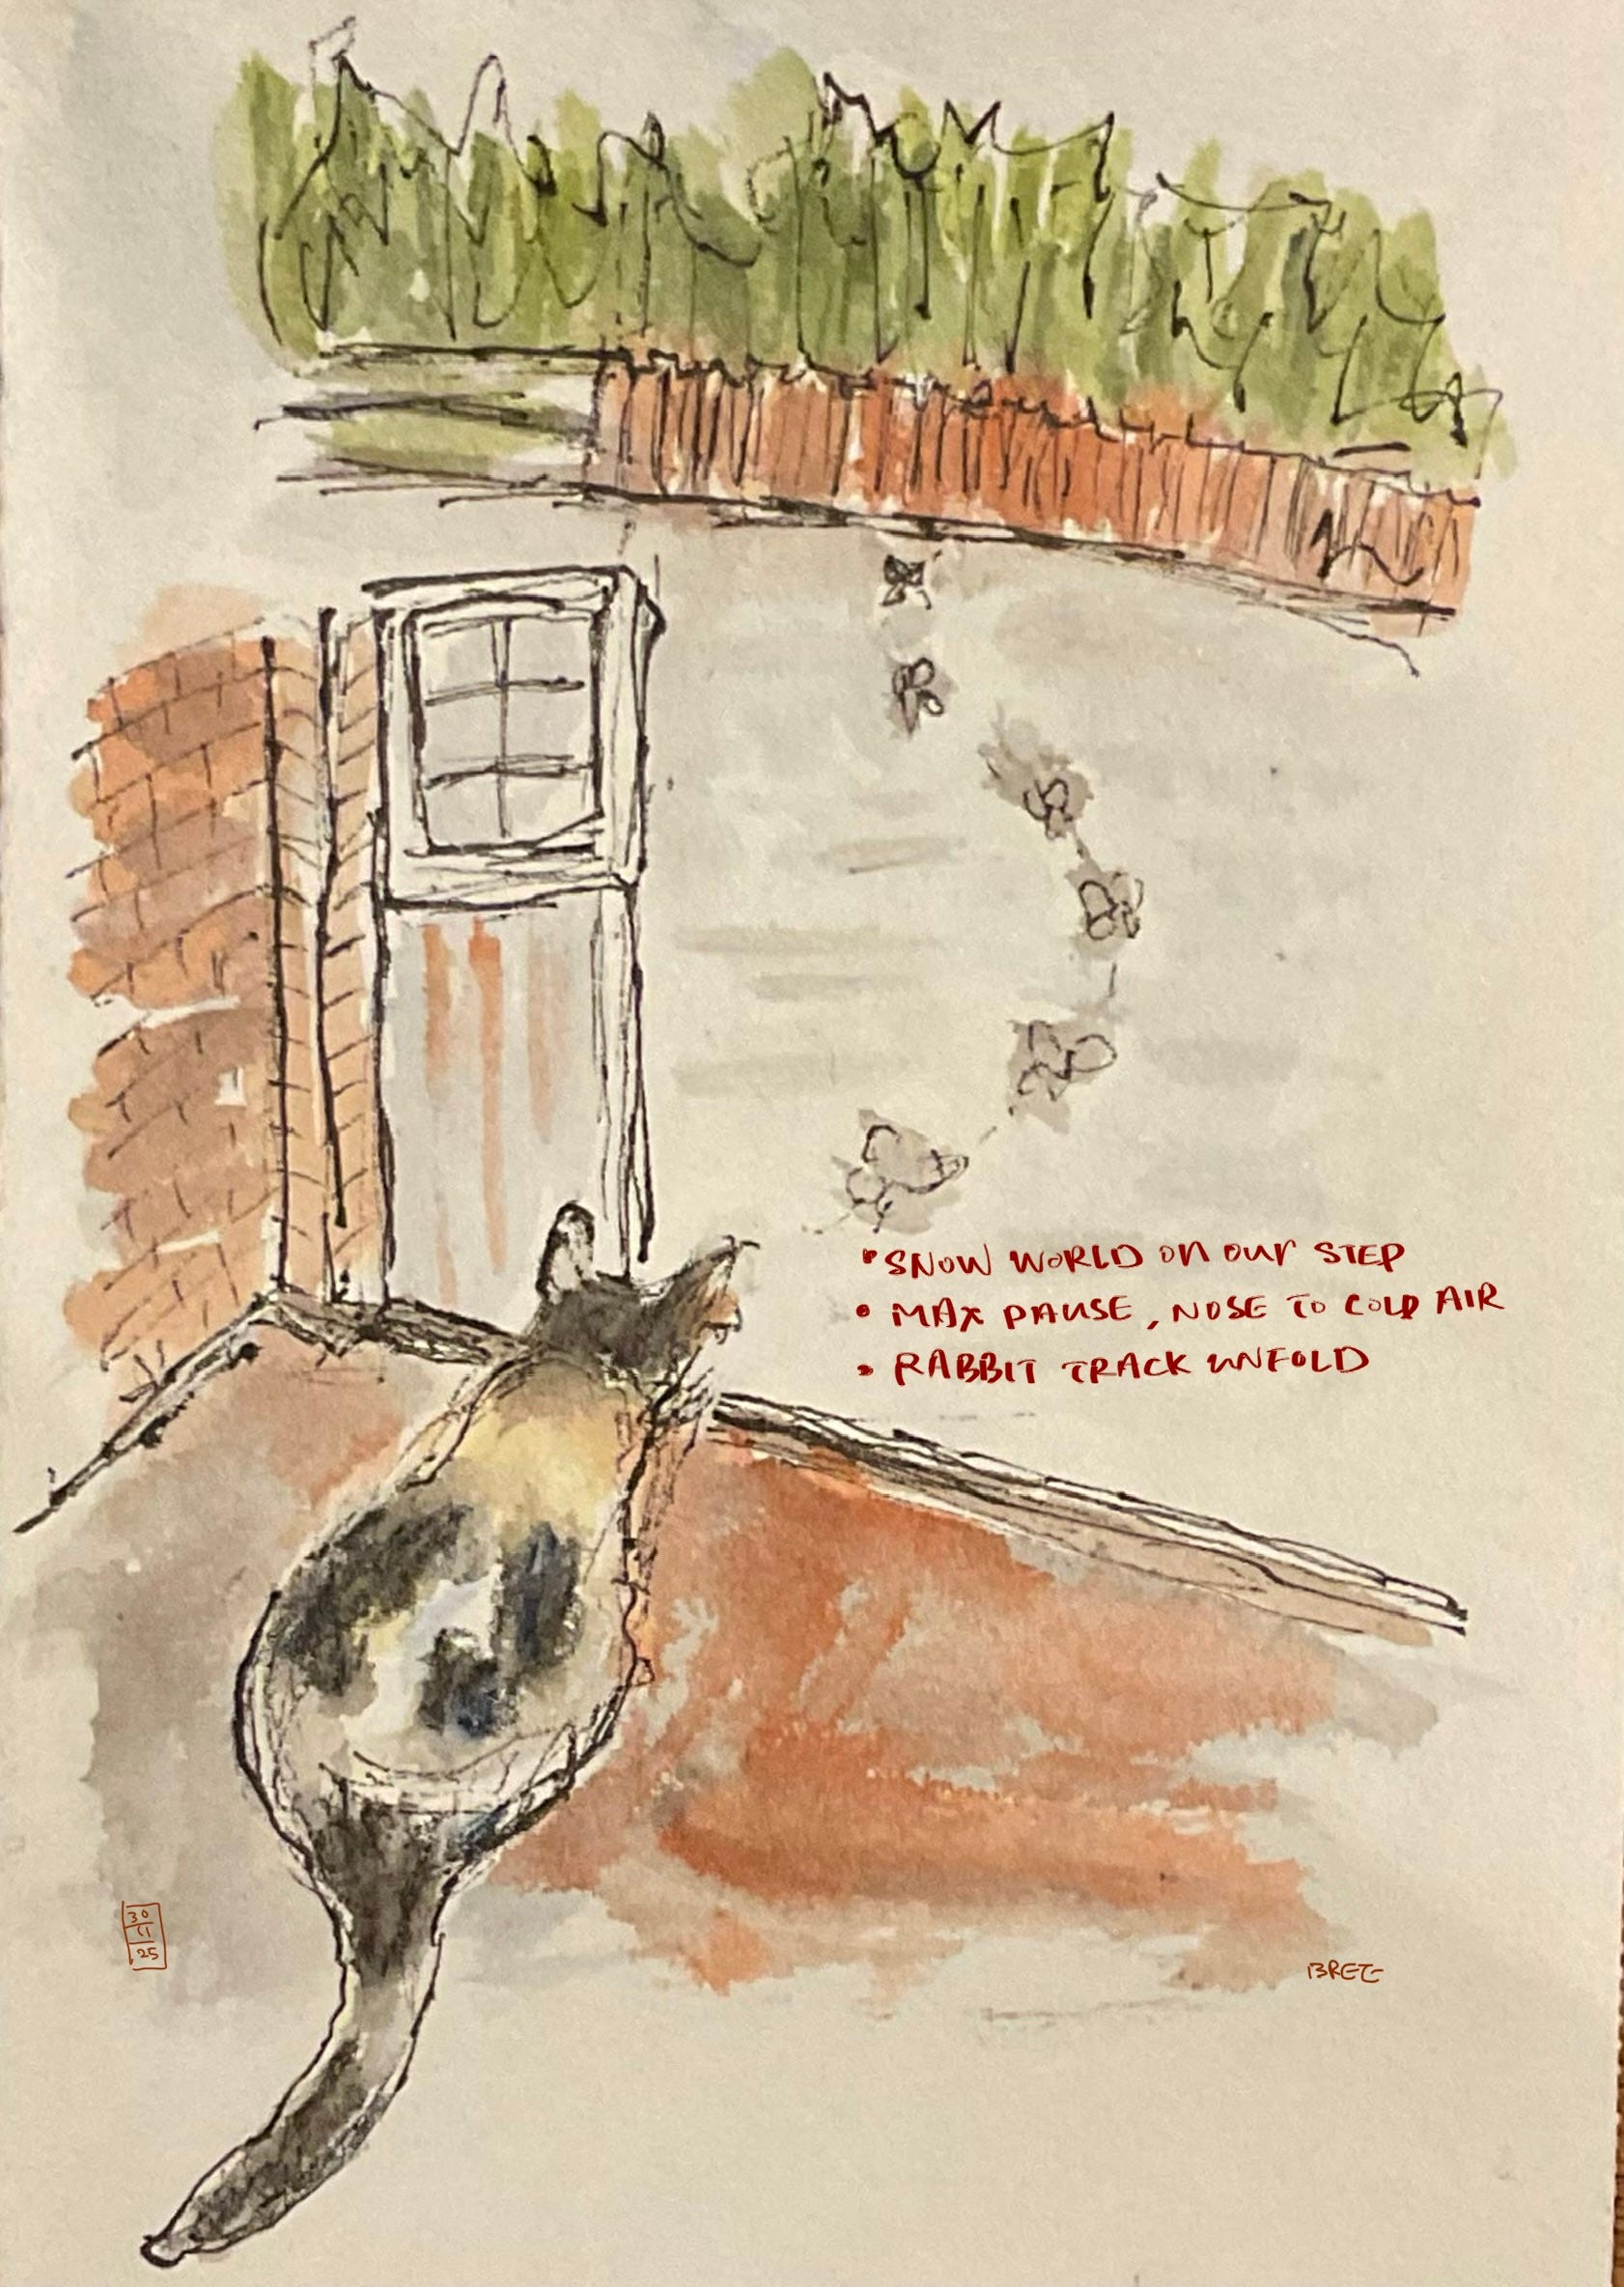 • SNOW WORLD ON OUR STEP
• MAX PAUSE, NOSE TO COLD AIR
• RABBIT TRACK UNFOLD
30
11
25